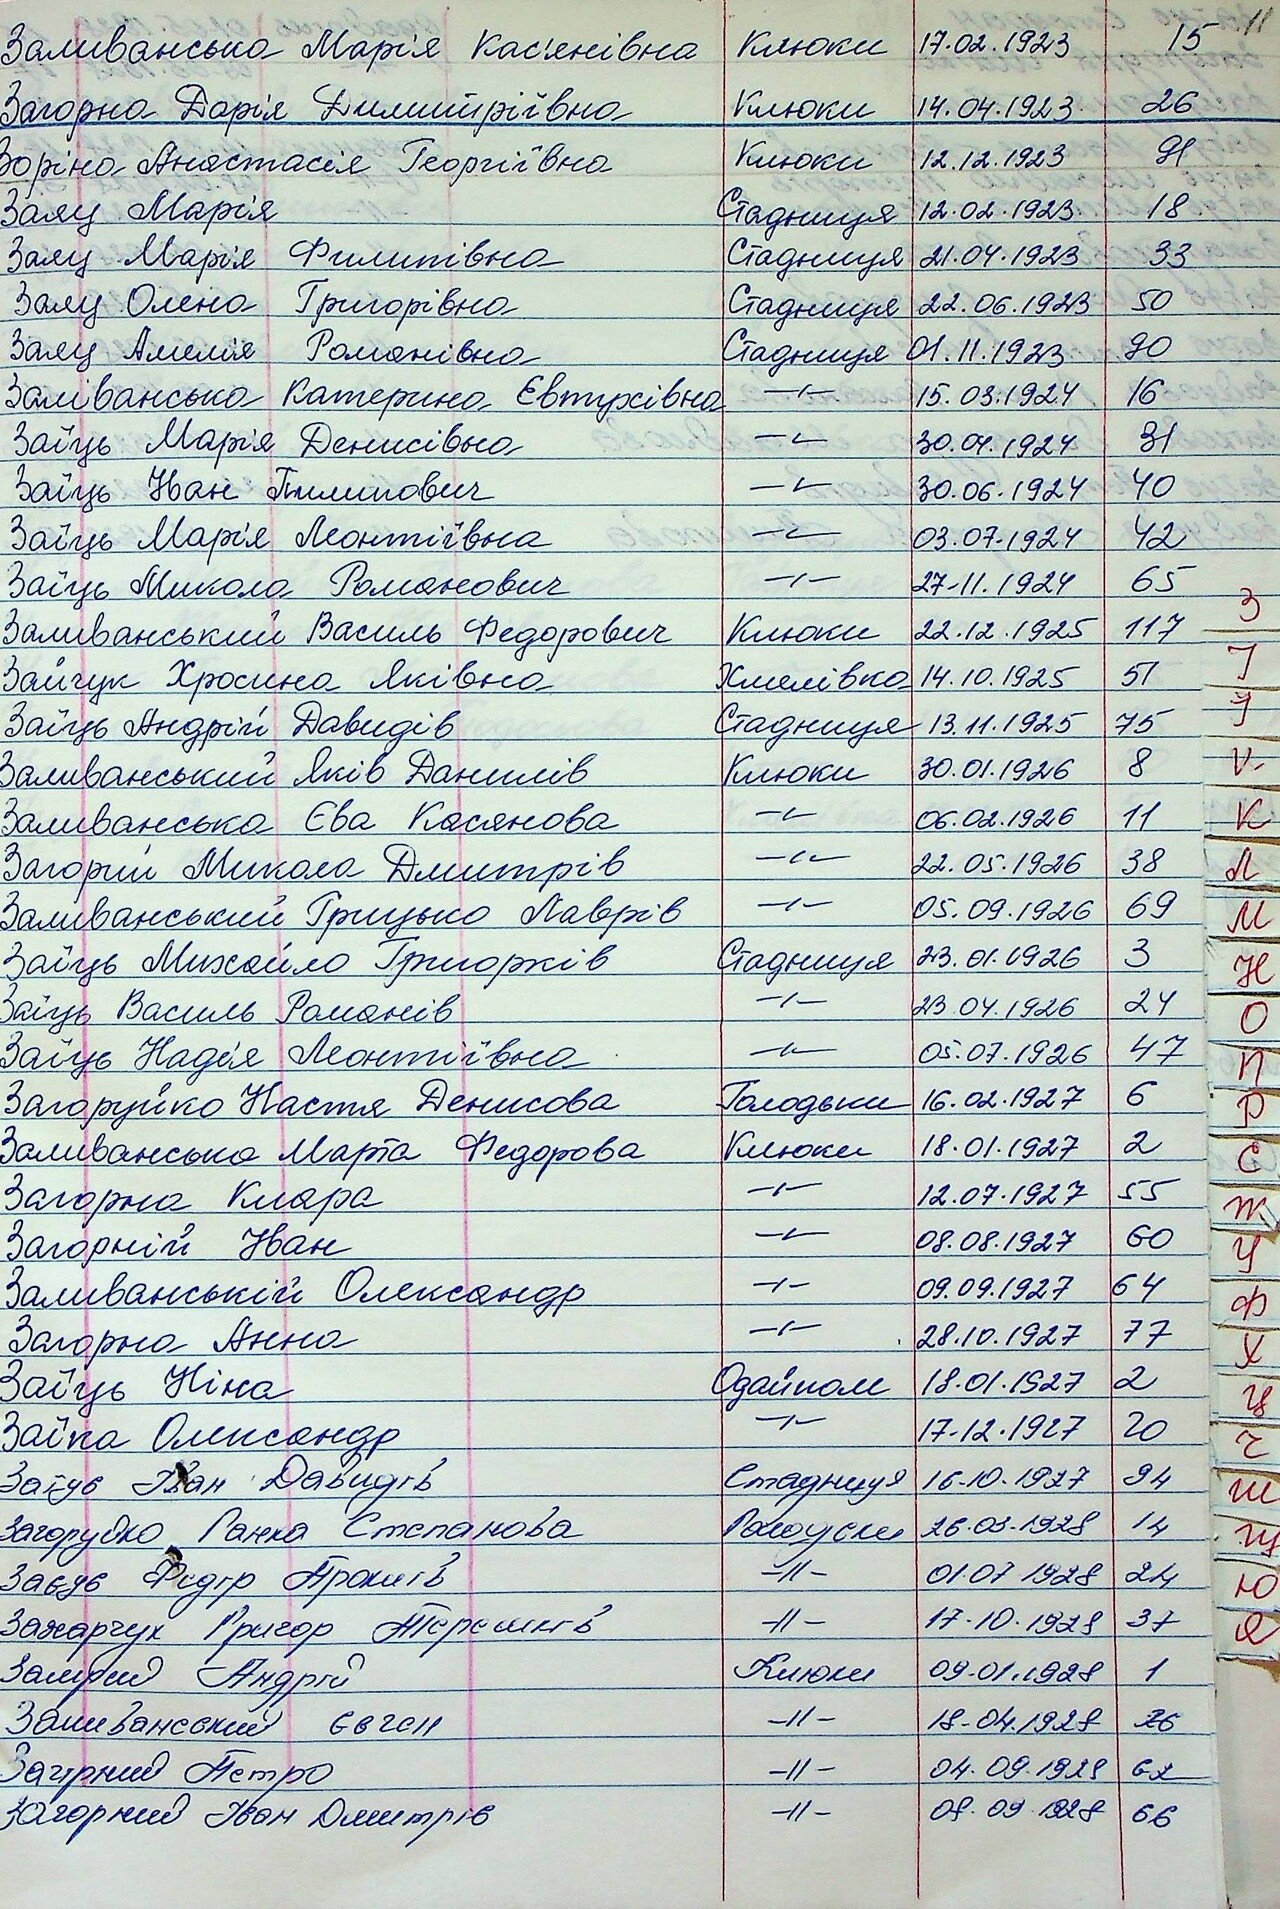 11
Заливанська Марія Касянівна Клюки 17.02.1923 15
Загорна Дарія Димитріївна Клюки 14.04.1923 26
Зоріна Анастасія Георгіївна Клюки 12.12.1923 91
Заяц Марія Стадниця 12.02.1923 18
Заяц Марія Филипівна Стадниця 21.04.1923 33
Заяц Олена Григорівна Стадниця 22.06.1923 50
Заяц Амелія Романівна Стадниця 01.11.1923 90
Заліванська Катерина Євтухівна -"- 15.03.1924 16
Заїць Марія Денисівна -"- 30.04.1924 31
Заїць Іван Пилипович -"- 30.06.1924 40
Заїць Марія Леонтіївна -"- 03.07.1924 42
Заїць Микола Романович -"- 27.11.1924 65
Заливанський Василь Федорович Клюки 22.12.1925 117
Зайчук Хросина Яківна Хмелівка 14.10.1925 51
Заїць Андрій Давидів Стадниця 13.11.1925 75
Заливанський Яків Данилів Клюки 30.01.1926 8
Заливанська Єва Касянова -"- 06.02.1926 11
Загорий Микола Дмитрів -"- 22.05.1926 38
Заливанський Грицько Лаврів -"- 05.09.1926 69
Заїць Михайло Григорків Стадниця 23.01.1926 3
Заїць Василь Романів -"- 23.04.1926 24
Заїць Надія Леонтіївна -"- 05.07.1926 47
Загоруйко Настя Денисова Голодьки 16.02.1927 6
Заливанська Марта Федорова Клюки 18.01.1927 2
Загорна Клара -"- 12.07.1927 55
Загорній Іван -"- 08.08.1927 60
Заливанській Олександр -"- 09.09.1927 64
Загорна Анна -"- 28.10.1927 77
Заїць Ніна Одайпол 18.01.1927 2
Заїка Олександр -"- 17.12.1927 20
Заїць Іван Давидів Стадниця 16.10.1927 94
Загоруйко Ганка Степанова 26.03.1928 14
Заєць Федір Прокипів -"- 01.07.1928 24
Захарчук Григор -"- 17.10.1928 37
Андрій Клюки 09.01.1928 1
Заливанський Євген -"- 18.04.1928 26
Загірний Петро -"- 04.09.1928 62
Загорний Іван Дмитрів -"- 08.09.1928 66
З
І
Ї
Й
К
Л
М
Н
О
П
Р
С
Т
У
Ф
Х
Ц
Ч
Ш
Щ
Ю
Я